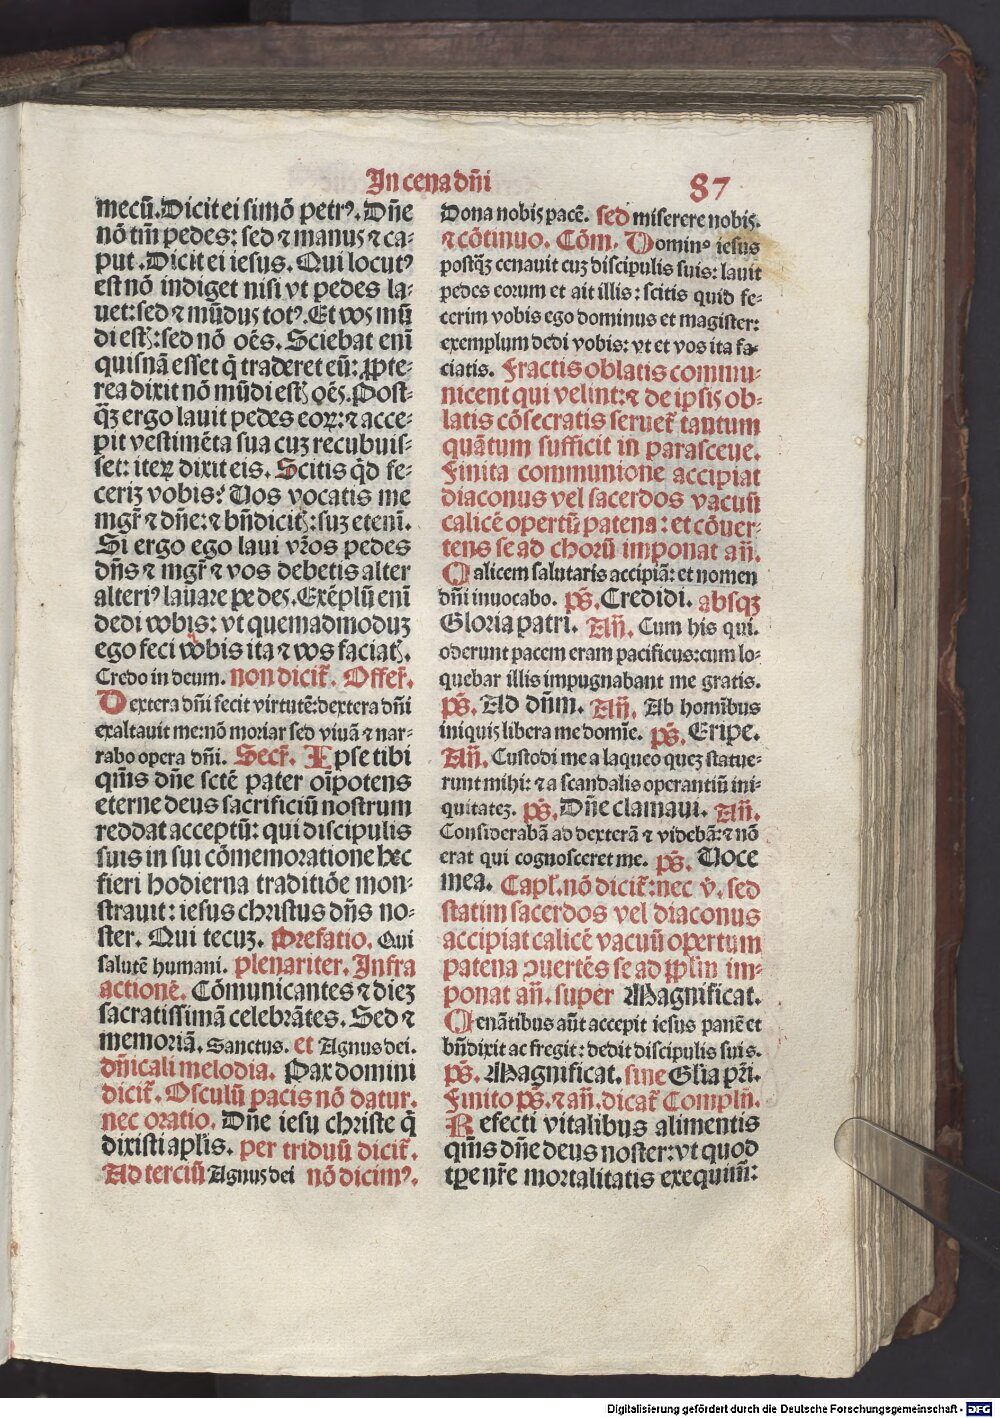 In cena dñi
87
mecū. Dicit ei simō petrꝰ. Dñe
nō tm̄ pedes: sed ⁊ manus ⁊ ca-
put. Dicit ei iesus. Qui locutꝰ
est nō indiget nisi vt pedes la-
uet: sed ⁊ mūdus totꝰ. Et vos mū
di estꝭ: sed nō oēs. Sciebat eni̅
quisnā esset q̄ traderet eū: ꝓpte-
rea dixit nō mūdi estꝭ oēs. Post-
q̄ꝫ ergo lauit pedes eoꝝ: ⁊ acce-
pit vestimēta sua cuꝫ recubuis-
set: iteꝝ dixit eis. Scitis q̄d fe-
ceriꝫ vobis? Vos vocatis me
mgr̄ ⁊ dñe: ⁊ bn̄dicitꝭ: suꝫ eteni̅.
Si ergo ego laui vr̄os pedes
dñs ⁊ mgr̄ ⁊ vos debetis alter
alteriꝰ lauare pedes. Exēplū eni̅
dedi vobis: vt quemadmoduꝫ
ego feci vobis ita ⁊ vos faciatꝭ.
Credo in deum. non dicit̄. Offer̄.
Dextera dñi fecit virtutē: dextera dñi
exaltauit me: nō moriar sed viuā ⁊ nar-
rabo opera dñi. Secr̄. Ipse tibi
qm̄s dñe sctē pater oīpotens
eterne deus sacrificiū nostrum
reddat acceptū: qui discipulis
suis in sui cōmemoratione hec
fieri hodierna traditiōe mon-
strauit: iesus christus dñs no-
ster. Qui tecuꝫ. Prefatio. Qui
salutē humani. plenariter. Infra
actionē. Cōmunicantes ⁊ dieꝫ
sacratissimā celebrātes. Sed ⁊
memoriā. Sanctus. et Agnus dei.
dñicali melodia. Pax domini
dicit̄. Osculū pacis nō datur.
nec oratio. Dñe iesu christe q̄
dixisti aplis. per triduū dicit̄.
Ad terciū Agnus dei nō dicimꝰ.
Dona nobis pacē. sed miserere nobis.
⁊ cōtinuo. Cōm. Dominꝰ iesus
postq̄ꝫ cenauit cuꝫ discipulis suis: lauit
pedes eorum et ait illis: scitis quid fe-
cerim vobis ego dominus et magister:
exemplum dedi vobis: vt et vos ita fa-
ciatis. Fractis oblatis commu-
nicent qui velint: ⁊ de ipsis ob-
latis cōsecratis seruet̄ tantum
quātum sufficit in parasceue.
Finita communione accipiat
diaconus vel sacerdos vacuū
calicē opertū patena: et cōuer-
tens se ad chorū imponat añ.
Calicem salutaris accipiā: et nomen
dñi inuocabo. pŝ. Credidi. absqꝫ
Gloria patri. Añ. Cum his qui.
oderunt pacem eram pacificus: cum lo-
quebar illis impugnabant me gratis.
pŝ. Ad dñm. Añ. Ab homībus
iniquis libera me domīe. pŝ. Eripe.
Añ. Custodi me a laqueo queꝫ statue-
runt mihi: ⁊ a scandalis operantiū ini-
quitateꝫ. pŝ. Dñe clamaui. Añ.
Considerabā ad dexterā ⁊ videbā: ⁊ nō
erat qui cognosceret me. pŝ. Voce
mea. Capl̄. nō dicit̄: nec v̄. sed
statim sacerdos vel diaconus
accipiat calicē vacuū opertum
patena ↄuertēs se ad ꝓplm̄ im-
ponat añ. super Magnificat.
Cenātibus aūt accepit iesus panē et
bn̄dixit ac fregit: dedit discipulis suis.
pŝ. Magnificat. sine Glia pr̄i.
Finito pŝ. ⁊ añ. dicat̄ Complñ.
Refecti vitalibus alimentis
qm̄s dñe deus noster: vt quod
tꝑe nr̄e mortalitatis exequim̄:
Digitalisierung gefördert durch die Deutsche Forschungsgemeinschaft - DFG